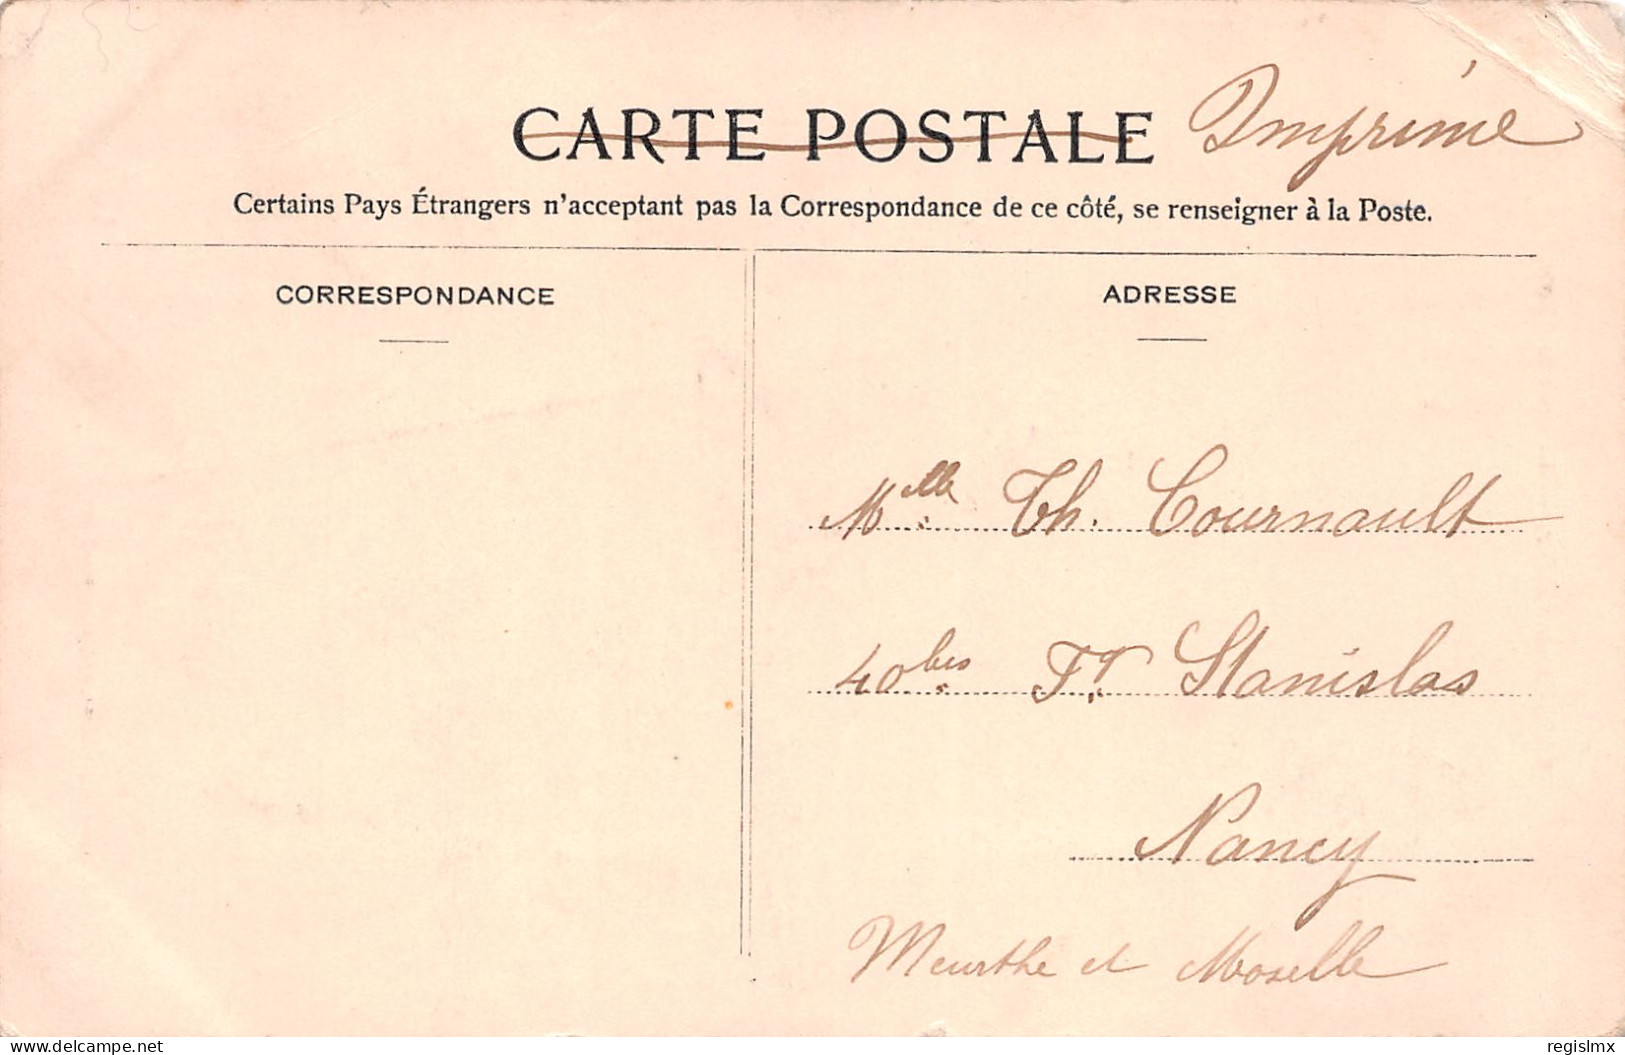 CARTE POSTALE Imprimé
Certains Pays Étrangers n'acceptant pas la Correspondance de ce côté, se renseigner à la Poste.
CORRESPONDANCE
ADRESSE
Mlle Th. Cournault
40bis Fg Stanislas
Nancy
Meurthe et Moselle
www.delcampe.net
regislmx